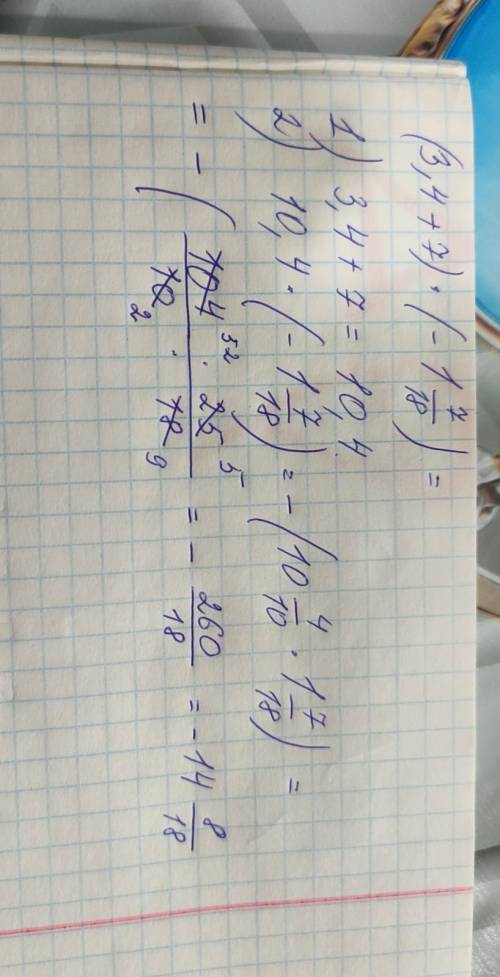 (3,4+7)·(-1 7/18)=
1) 3,4+7=10,4
2) 10,4·(-1 7/18)=-(10 4/10·1 7/18)=
=-(104 52·25 5/10 2·18 9=-260/18=-14 8/18